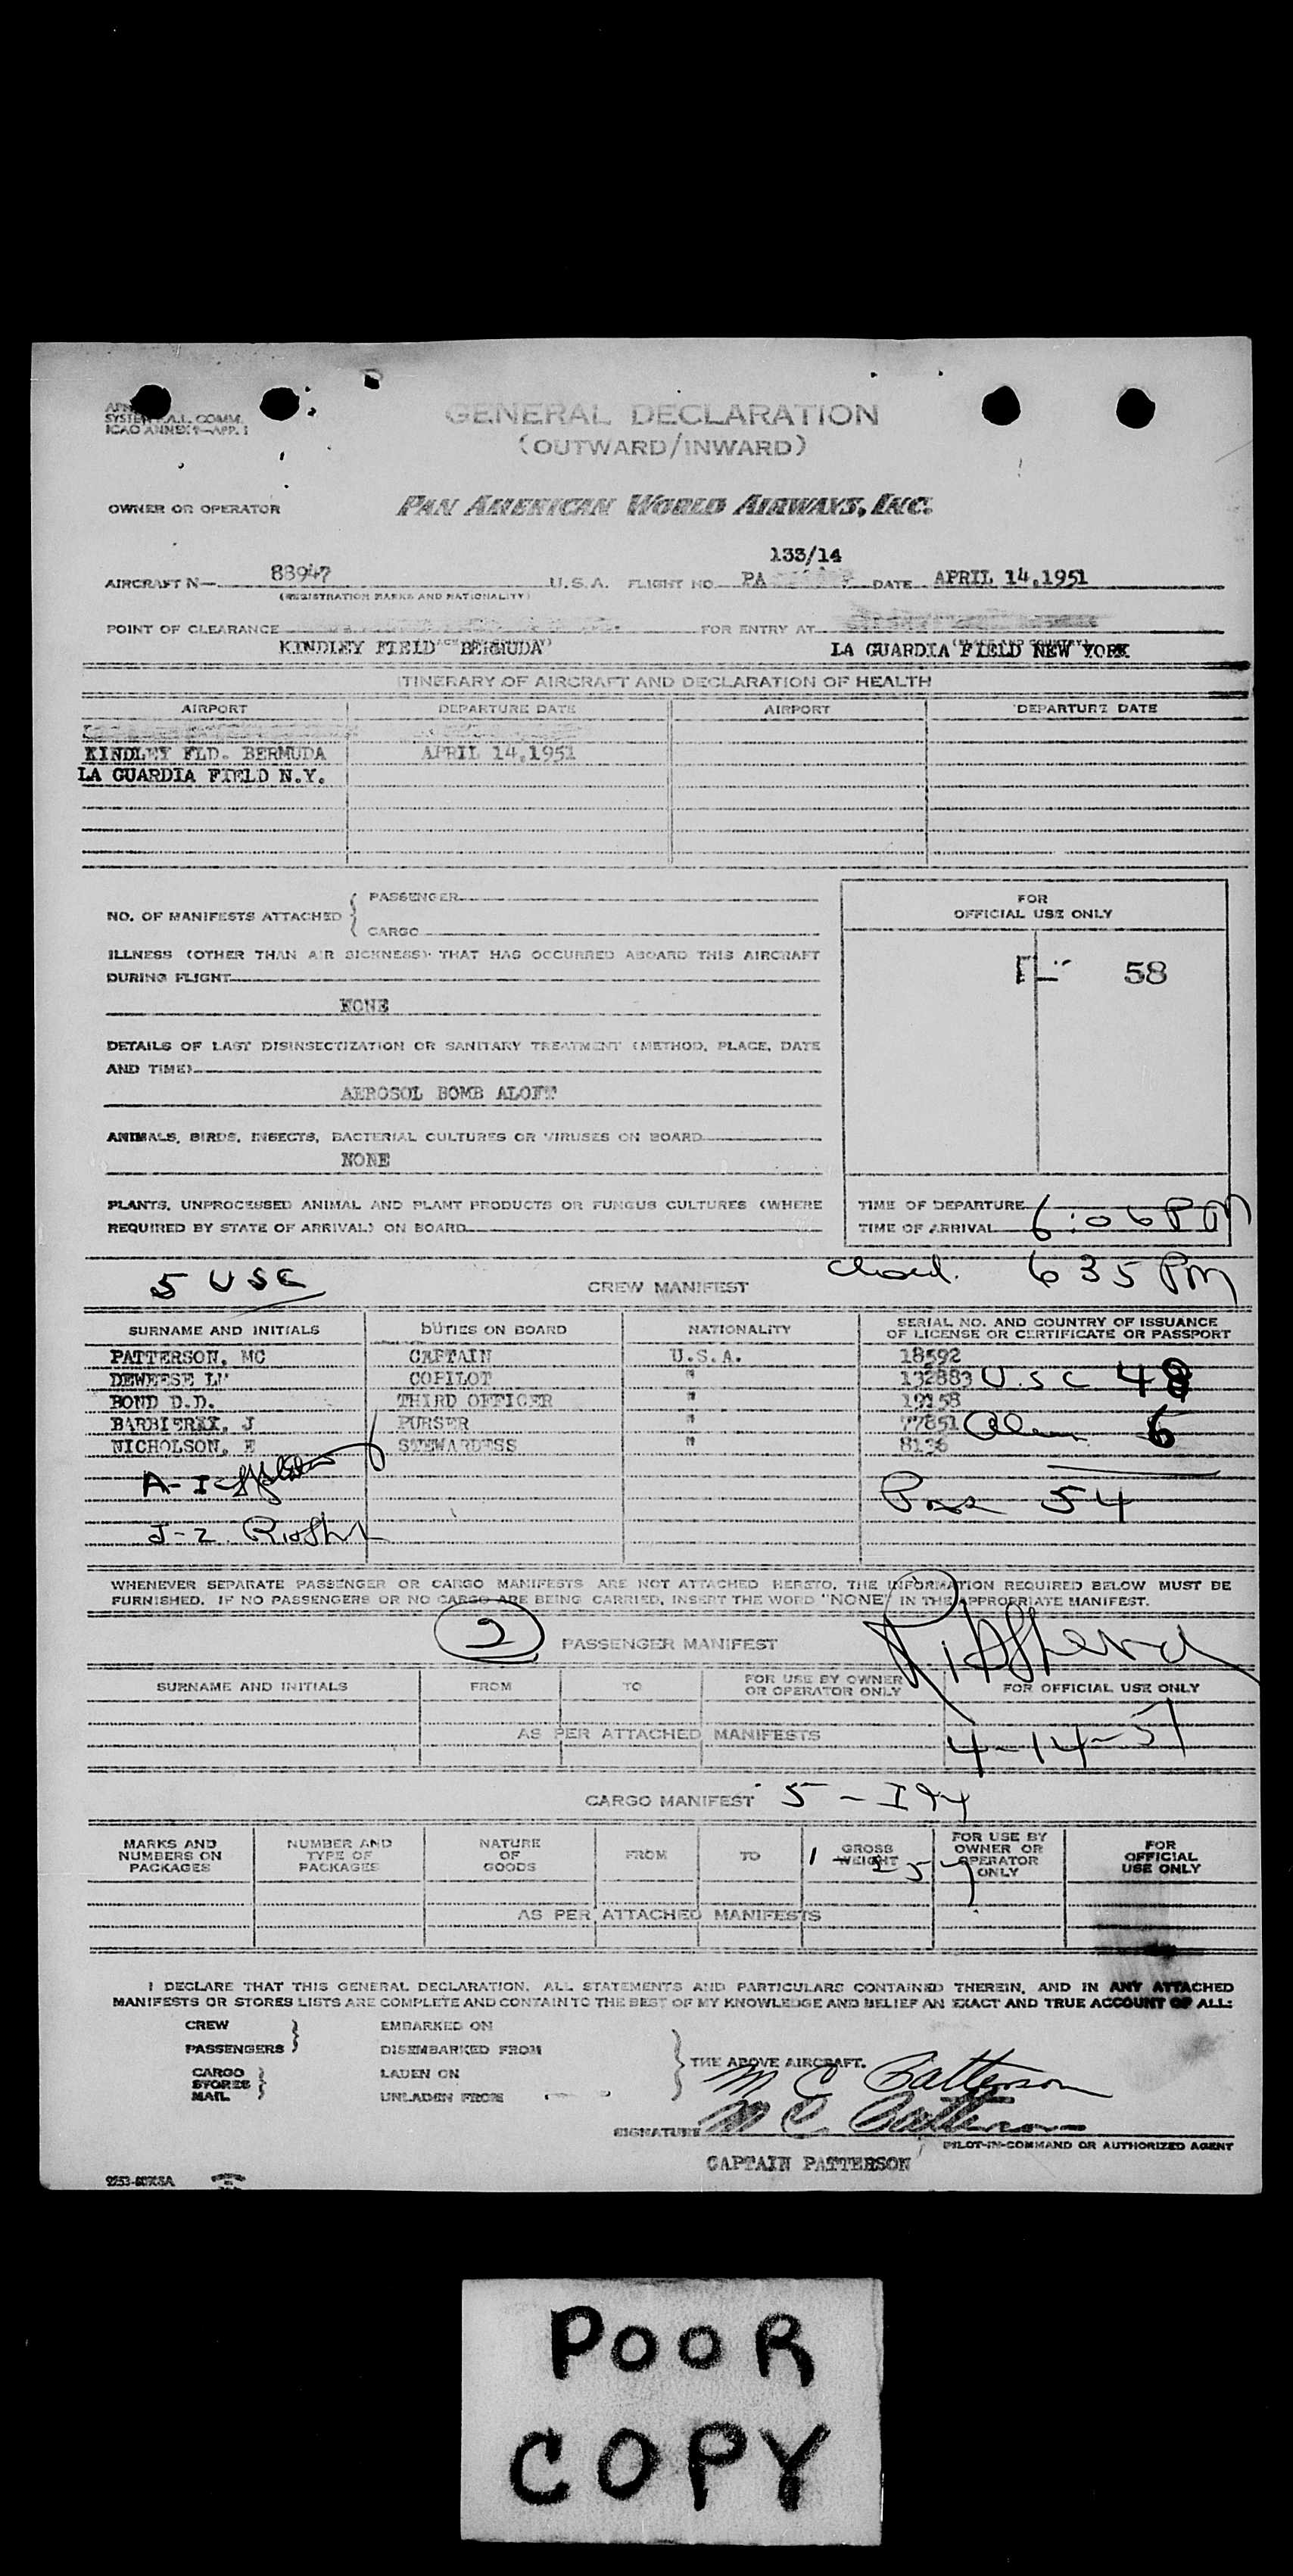 SYSTEM A.L. COMM.
ICAO ANNEX 9—APP. 1
GENERAL DECLARATION
(OUTWARD/INWARD)
OWNER OR OPERATOR PAN AMERICAN WORLD AIRWAYS, INC.
133/14
AIRCRAFT N— 88947 U.S.A. FLIGHT NO. PA DATE APRIL 14,1951
(REGISTRATION MARKS AND NATIONALITY)
POINT OF CLEARANCE FOR ENTRY AT
KINDLEY FIELD BERMUDA LA GUARDIA FIELD NEW YORK
ITINERARY OF AIRCRAFT AND DECLARATION OF HEALTH
AIRPORT DEPARTURE DATE AIRPORT DEPARTURE DATE
KINDLEY FLD. BERMUDA APRIL 14,1951
LA GUARDIA FIELD N.Y.
NO. OF MANIFESTS ATTACHED { PASSENGER
CARGO
FOR
OFFICIAL USE ONLY
58
ILLNESS (OTHER THAN AIR SICKNESS) THAT HAS OCCURRED ABOARD THIS AIRCRAFT
DURING FLIGHT
NONE
DETAILS OF LAST DISINSECTIZATION OR SANITARY TREATMENT (METHOD, PLACE, DATE
AND TIME)
AEROSOL BOMB ALOFT
ANIMALS, BIRDS, INSECTS, BACTERIAL CULTURES OR VIRUSES ON BOARD
NONE
PLANTS, UNPROCESSED ANIMAL AND PLANT PRODUCTS OR FUNGUS CULTURES (WHERE
REQUIRED BY STATE OF ARRIVAL) ON BOARD
TIME OF DEPARTURE
TIME OF ARRIVAL 6:06 PM
635 PM
5 USC
CREW MANIFEST
SURNAME AND INITIALS DUTIES ON BOARD NATIONALITY SERIAL NO. AND COUNTRY OF ISSUANCE
OF LICENSE OR CERTIFICATE OR PASSPORT
PATTERSON, MC CAPTAIN U.S.A. 18592
DEWEESE COPILOT " 132883 U.S.C 48
BOND D.D. THIRD OFFICER " 19158
BARBIERI, J PURSER " 77851 Alien 6
NICHOLSON, E STEWARDESS " 8136
A-I
Pax 54
J-2
WHENEVER SEPARATE PASSENGER OR CARGO MANIFESTS ARE NOT ATTACHED HERETO, THE INFORMATION REQUIRED BELOW MUST BE
FURNISHED. IF NO PASSENGERS OR NO CARGO ARE BEING CARRIED, INSERT THE WORD "NONE" IN THE APPROPRIATE MANIFEST.
2 PASSENGER MANIFEST
SURNAME AND INITIALS FROM TO FOR USE BY OWNER
OR OPERATOR ONLY FOR OFFICIAL USE ONLY
AS PER ATTACHED MANIFESTS
4-14-51
CARGO MANIFEST 5 - I94
MARKS AND
NUMBERS ON
PACKAGES
NUMBER AND
TYPE OF
PACKAGES
NATURE
OF
GOODS
FROM
TO
GROSS
WEIGHT
1 - 257
FOR USE BY
OWNER OR
OPERATOR
ONLY
FOR
OFFICIAL
USE ONLY
AS PER ATTACHED MANIFESTS
I DECLARE THAT THIS GENERAL DECLARATION, ALL STATEMENTS AND PARTICULARS CONTAINED THEREIN, AND IN ANY ATTACHED
MANIFESTS OR STORES LISTS ARE COMPLETE AND CONTAIN TO THE BEST OF MY KNOWLEDGE AND BELIEF AN EXACT AND TRUE ACCOUNT OF ALL:
CREW EMBARKED ON
PASSENGERS DISEMBARKED FROM
THE ABOVE AIRCRAFT.
CARGO LADEN ON
STORES
MAIL UNLADEN FROM
M C Patterson
SIGNATURE M C. Patterson
PILOT-IN-COMMAND OR AUTHORIZED AGENT
CAPTAIN PATTERSON
POOR
COPY